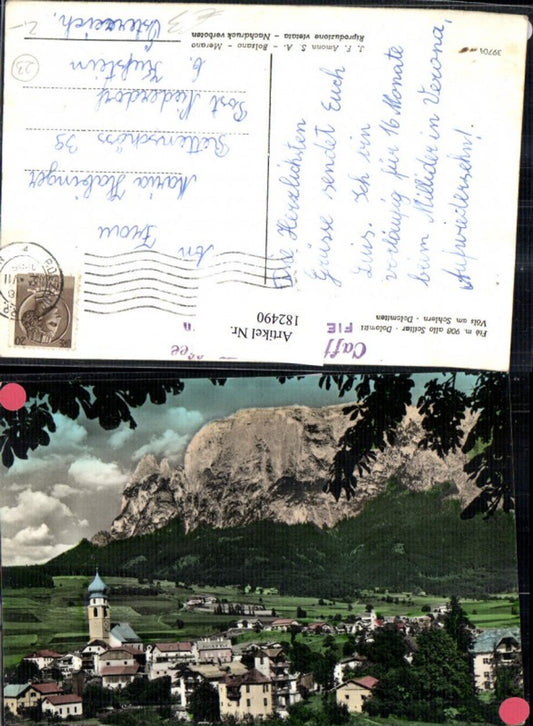 Fiè m. 908 allo Sciliar - Dolomiti
Völs am Schlern - Dolomiten
Die Herzlichsten
Grüsse sendet Euch
Luis. Ich bin
vorläufig für 16 Monate
beim Millider in Verona,
Aufwiedersehn!
An
Frau
Maria
39
Post Niederdorf
b. Kufstein
Österreich.
J. F. Amonn S. A. - Bolzano - Merano
Riproduzione vietata - Nachdruck verboten
39704
23
20
Artikel Nr.
182490
Caff
FIE